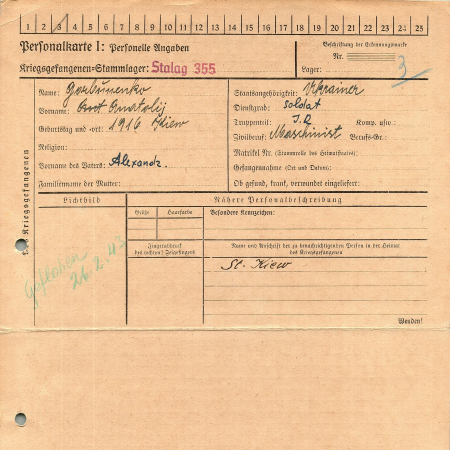 1 2 3 4 5 6 7 8 9 10 11 12 13 14 15 16 17 18 19 20 21 22 23 24 25
Personalkarte I: Personelle Angaben
Kriegsgefangenen-Stammlager: Stalag 355
Beschriftung der Erkennungsmarke
Nr.
Lager:
3
Name: Gorbunenko
Vorname: Anatolij
Geburtstag und -ort: 1916 Kiew
Religion:
Vorname des Vaters: Alexandr.
Familienname der Mutter:
Staatsangehörigkeit: Ukrainer
Dienstgrad: Soldat
Truppenteil: J.R Komp. usw.:
Zivilberuf: Maschinist Berufs-Gr.:
Matrikel Nr. (Stammrolle des Heimatstaates):
Gefangennahme (Ort und Datum):
Ob gesund, krank, verwundet eingeliefert:
Des Kriegsgefangenen
Lichtbild
Geflohen
26.2.43
Nähere Personalbeschreibung
Größe
Haarfarbe
Besondere Kennzeichen:
Fingerabdruck
des rechten Zeigefingers
Name und Anschrift der zu benachrichtigenden Person in der Heimat
des Kriegsgefangenen
St. Kiew
Wenden!